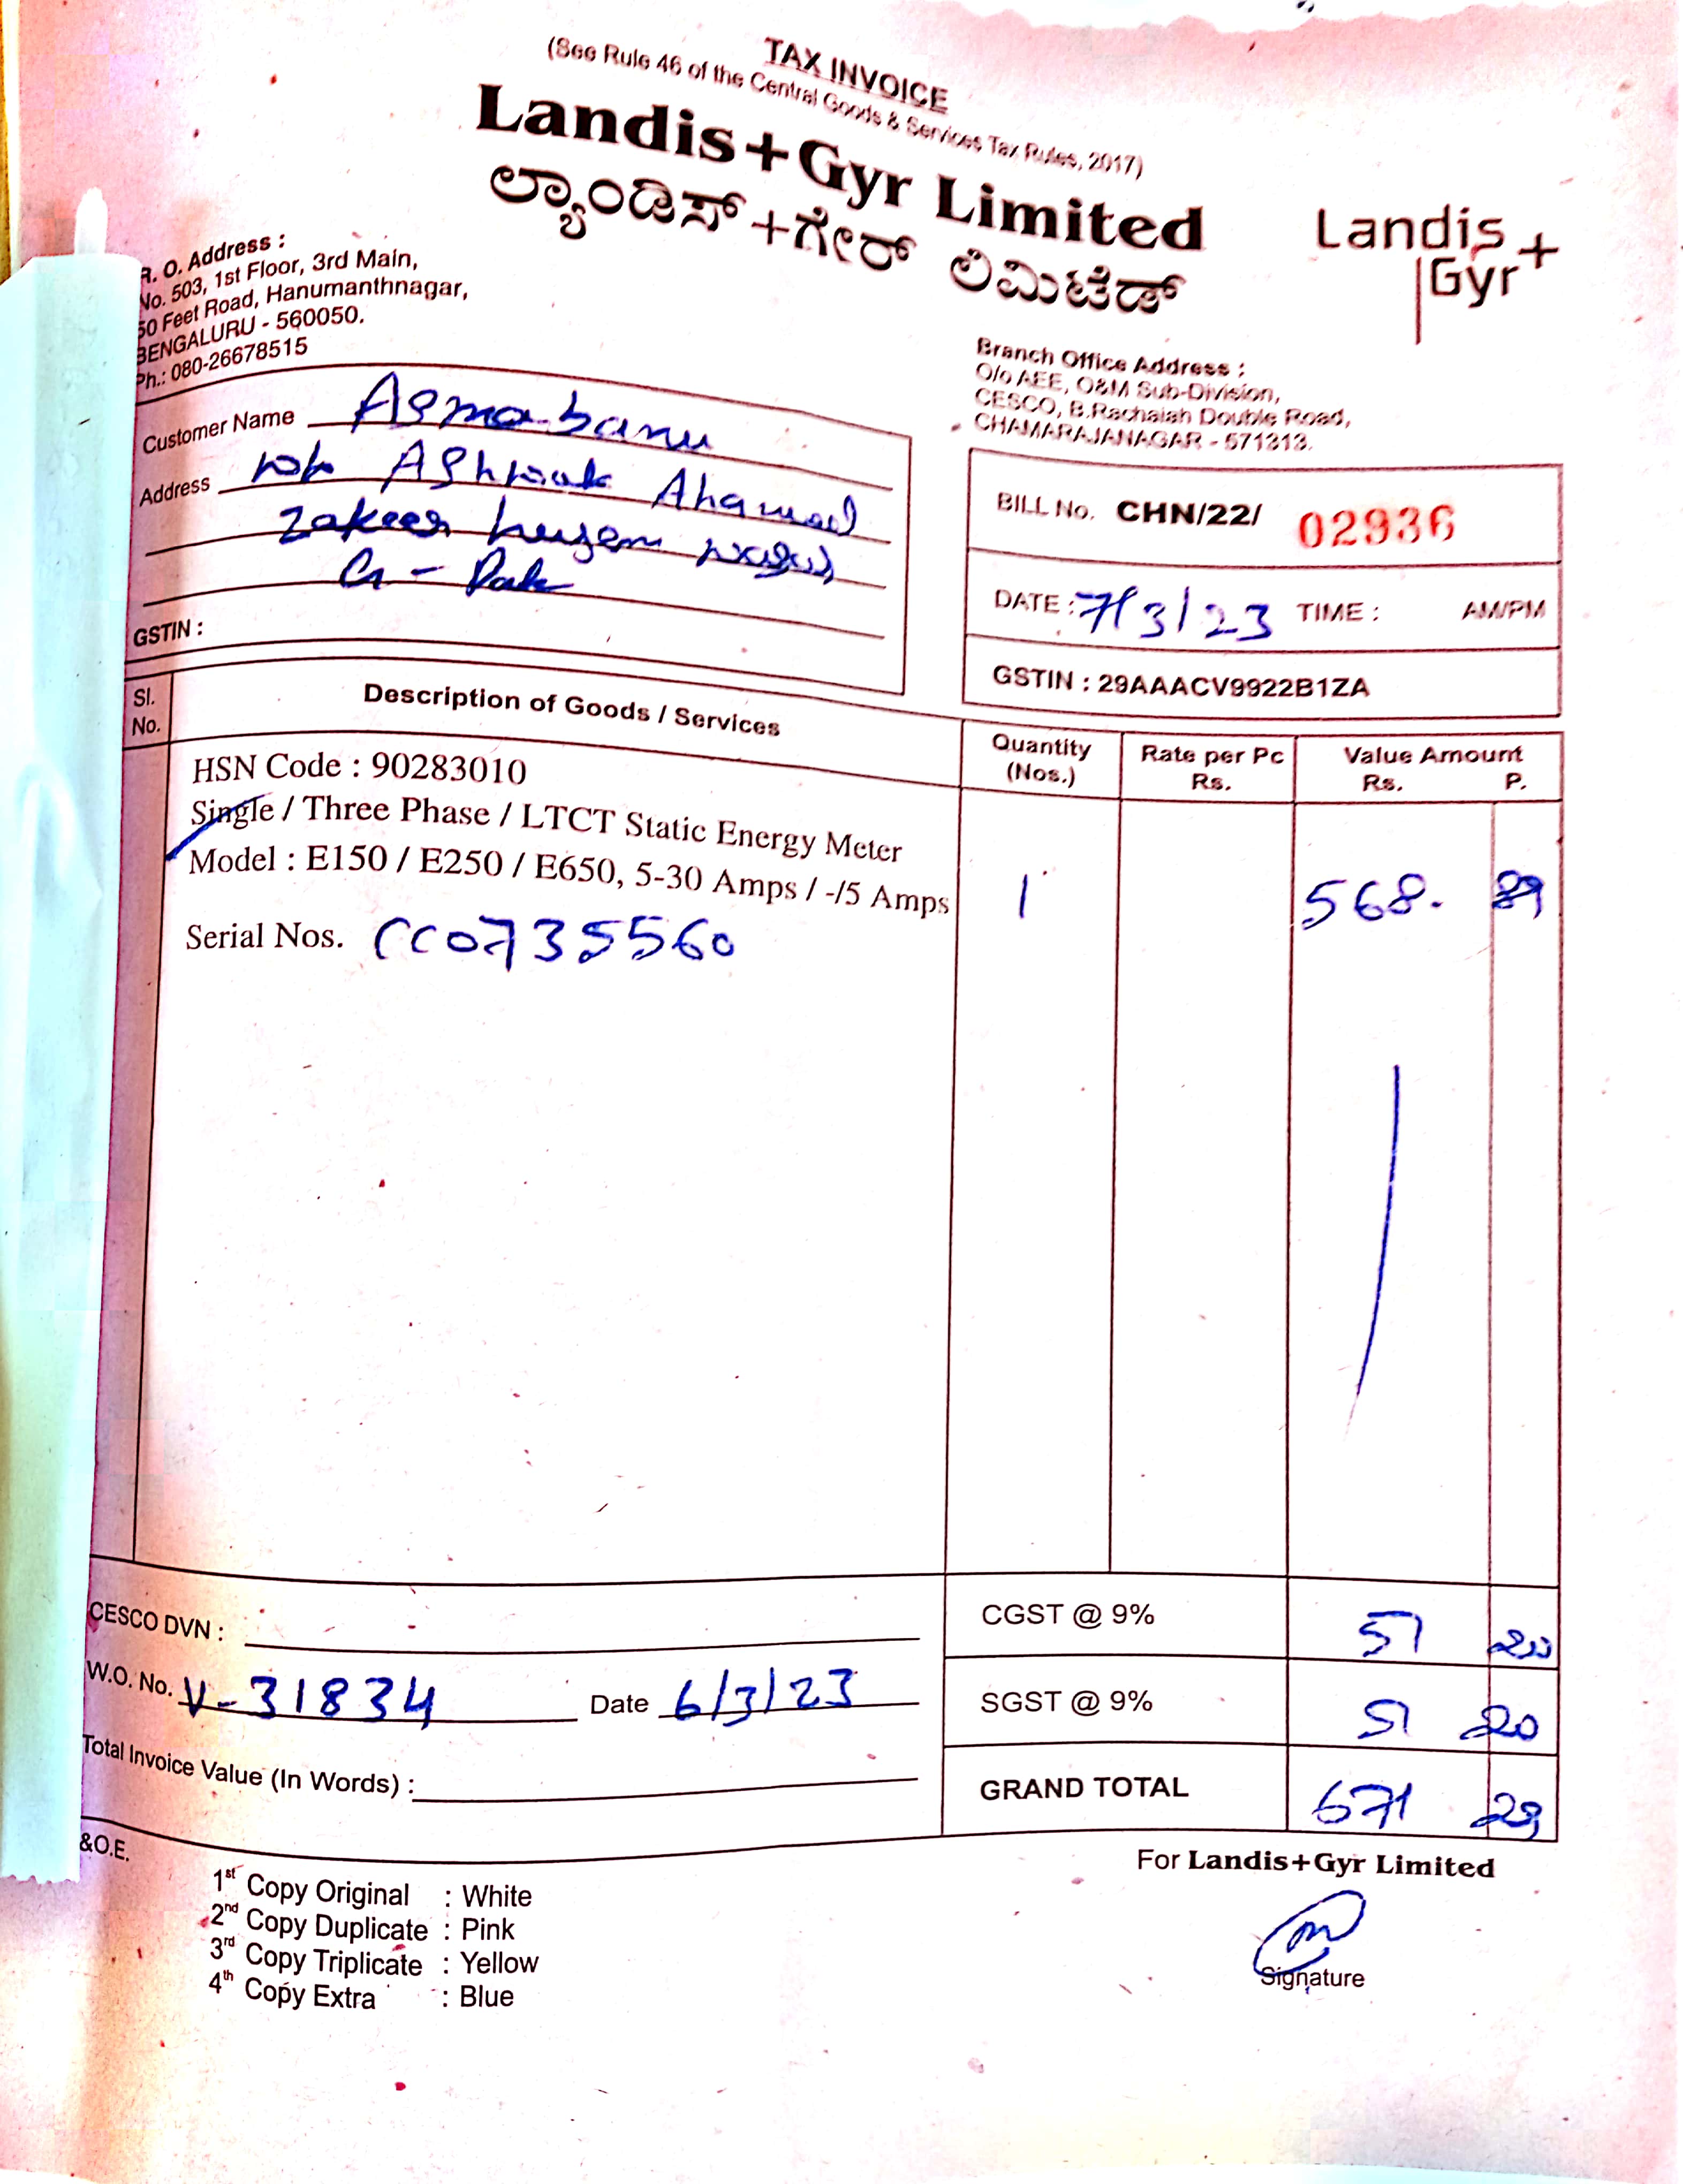 TAX INVOICE
(See Rule 46 of the Central Goods & Services Tax Rules, 2017)
Landis+Gyr Limited
ಲ್ಯಾಂಡಿಸ್+ಗೇರ್ ಲಿಮಿಟೆಡ್
Landis+
Gyr
R. O. Address :
No. 503, 1st Floor, 3rd Main,
50 Feet Road, Hanumanthnagar,
BENGALURU - 560050.
Ph.: 080-26678515
Branch Office Address :
O/o AEE, O&M Sub-Division,
CESCO, B.Rachaiah Double Road,
CHAMARAJANAGAR - 571313.
Customer Name Asma banu
Address Ahamad
Zakeer
GSTIN :
BILL No. CHN/22/ 02936
DATE : 7/3/23 TIME : AM/PM
GSTIN : 29AAACV9922B1ZA
Sl. No. Description of Goods / Services Quantity (Nos.) Rate per Pc Rs. Value Amount Rs. P.
HSN Code : 90283010
Single / Three Phase / LTCT Static Energy Meter
Model : E150 / E250 / E650, 5-30 Amps / -/5 Amps 1 568. 89
Serial Nos. CC0735560
CESCO DVN :
CGST @ 9% 51 20
W.O. No. V-31834 Date 6/3/23
SGST @ 9% 51 20
Total Invoice Value (In Words) :
GRAND TOTAL 671 29
&O.E.
For Landis+Gyr Limited
1st Copy Original : White
2nd Copy Duplicate : Pink
3rd Copy Triplicate : Yellow
4th Copy Extra : Blue
Signature